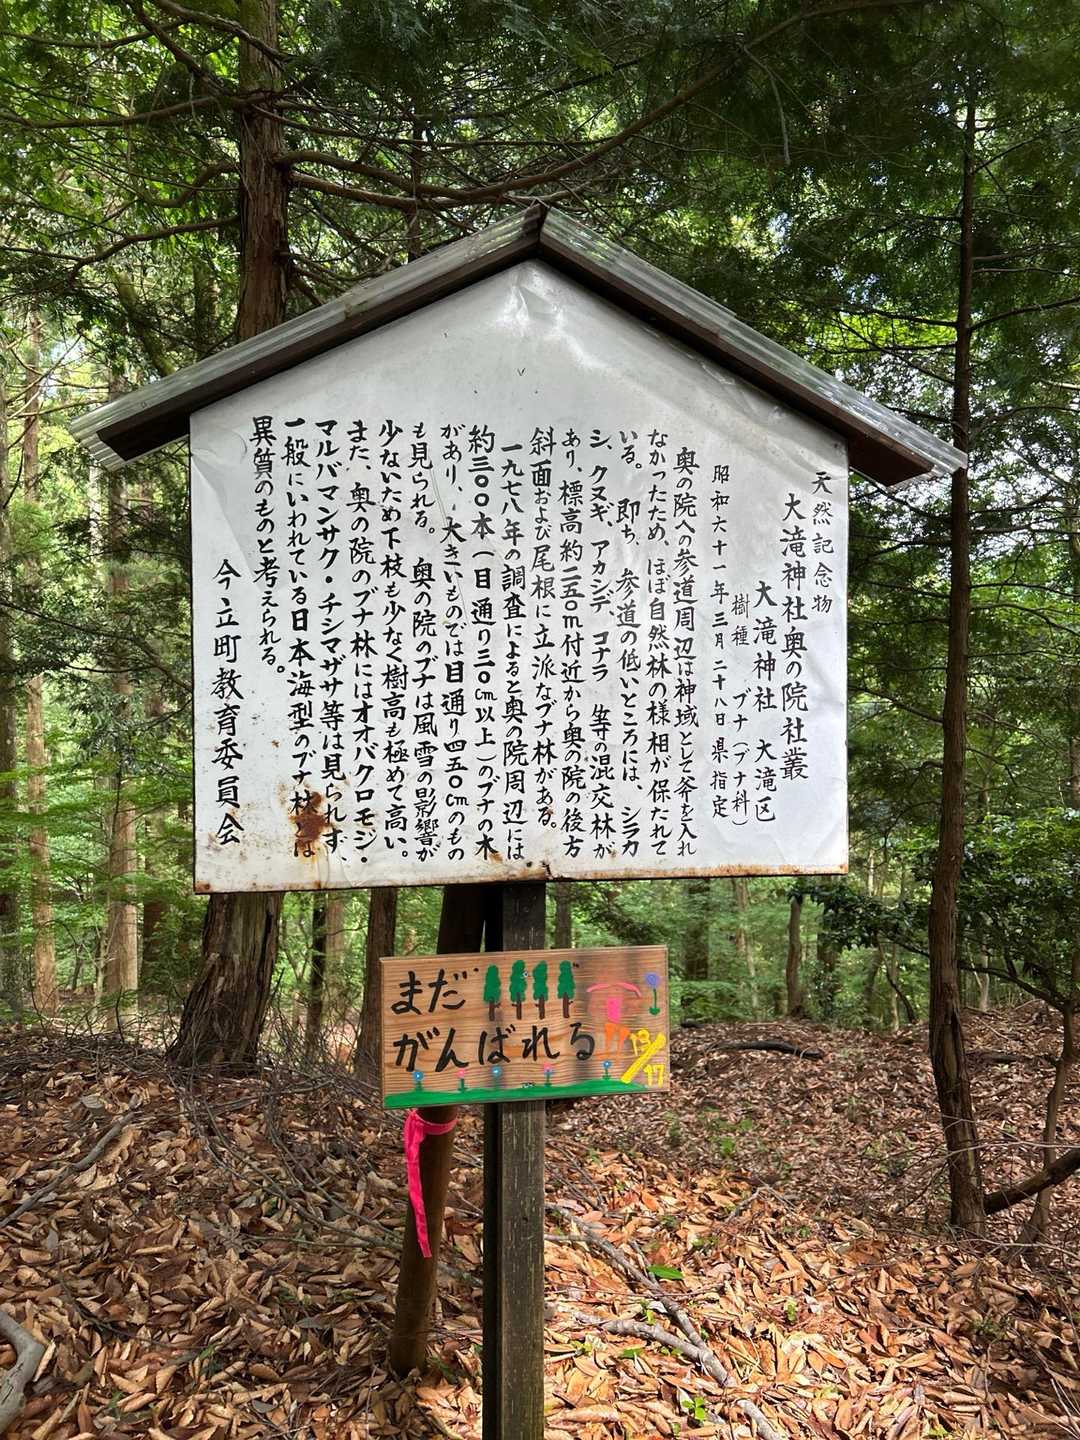 天然記念物
大滝神社奥の院社叢
大滝神社 大滝区
樹種 ブナ(ブナ科)
昭和六十一年三月二十八日県指定
奥の院への参道周辺は神域として斧を入れ
なかったため、ほぼ自然林の様相が保たれて
いる。即ち、参道の低いところには、シラカ
シ、クヌギ、アカシデ、コナラ 等の混交林が
あり、標高約二五〇m付近から奥の院の後方
斜面および尾根に立派なブナ林がある。
一九七八年の調査によると奥の院周辺には
約三〇〇本(目通り三〇cm以上)のブナの木
があり、大きいものでは目通り四五〇cmのもの
も見られる。 奥の院のブナは風雪の影響が
少ないため下枝も少なく樹高も極めて高い。
また、奥の院のブナ林にはオオバクロモジ・
マルバマンサク・チシマザサ等は見られず、
一般にいわれている日本海型のブナ林とは
異質のものと考えられる。
今立町教育委員会
まだ
がんばれる
13/17